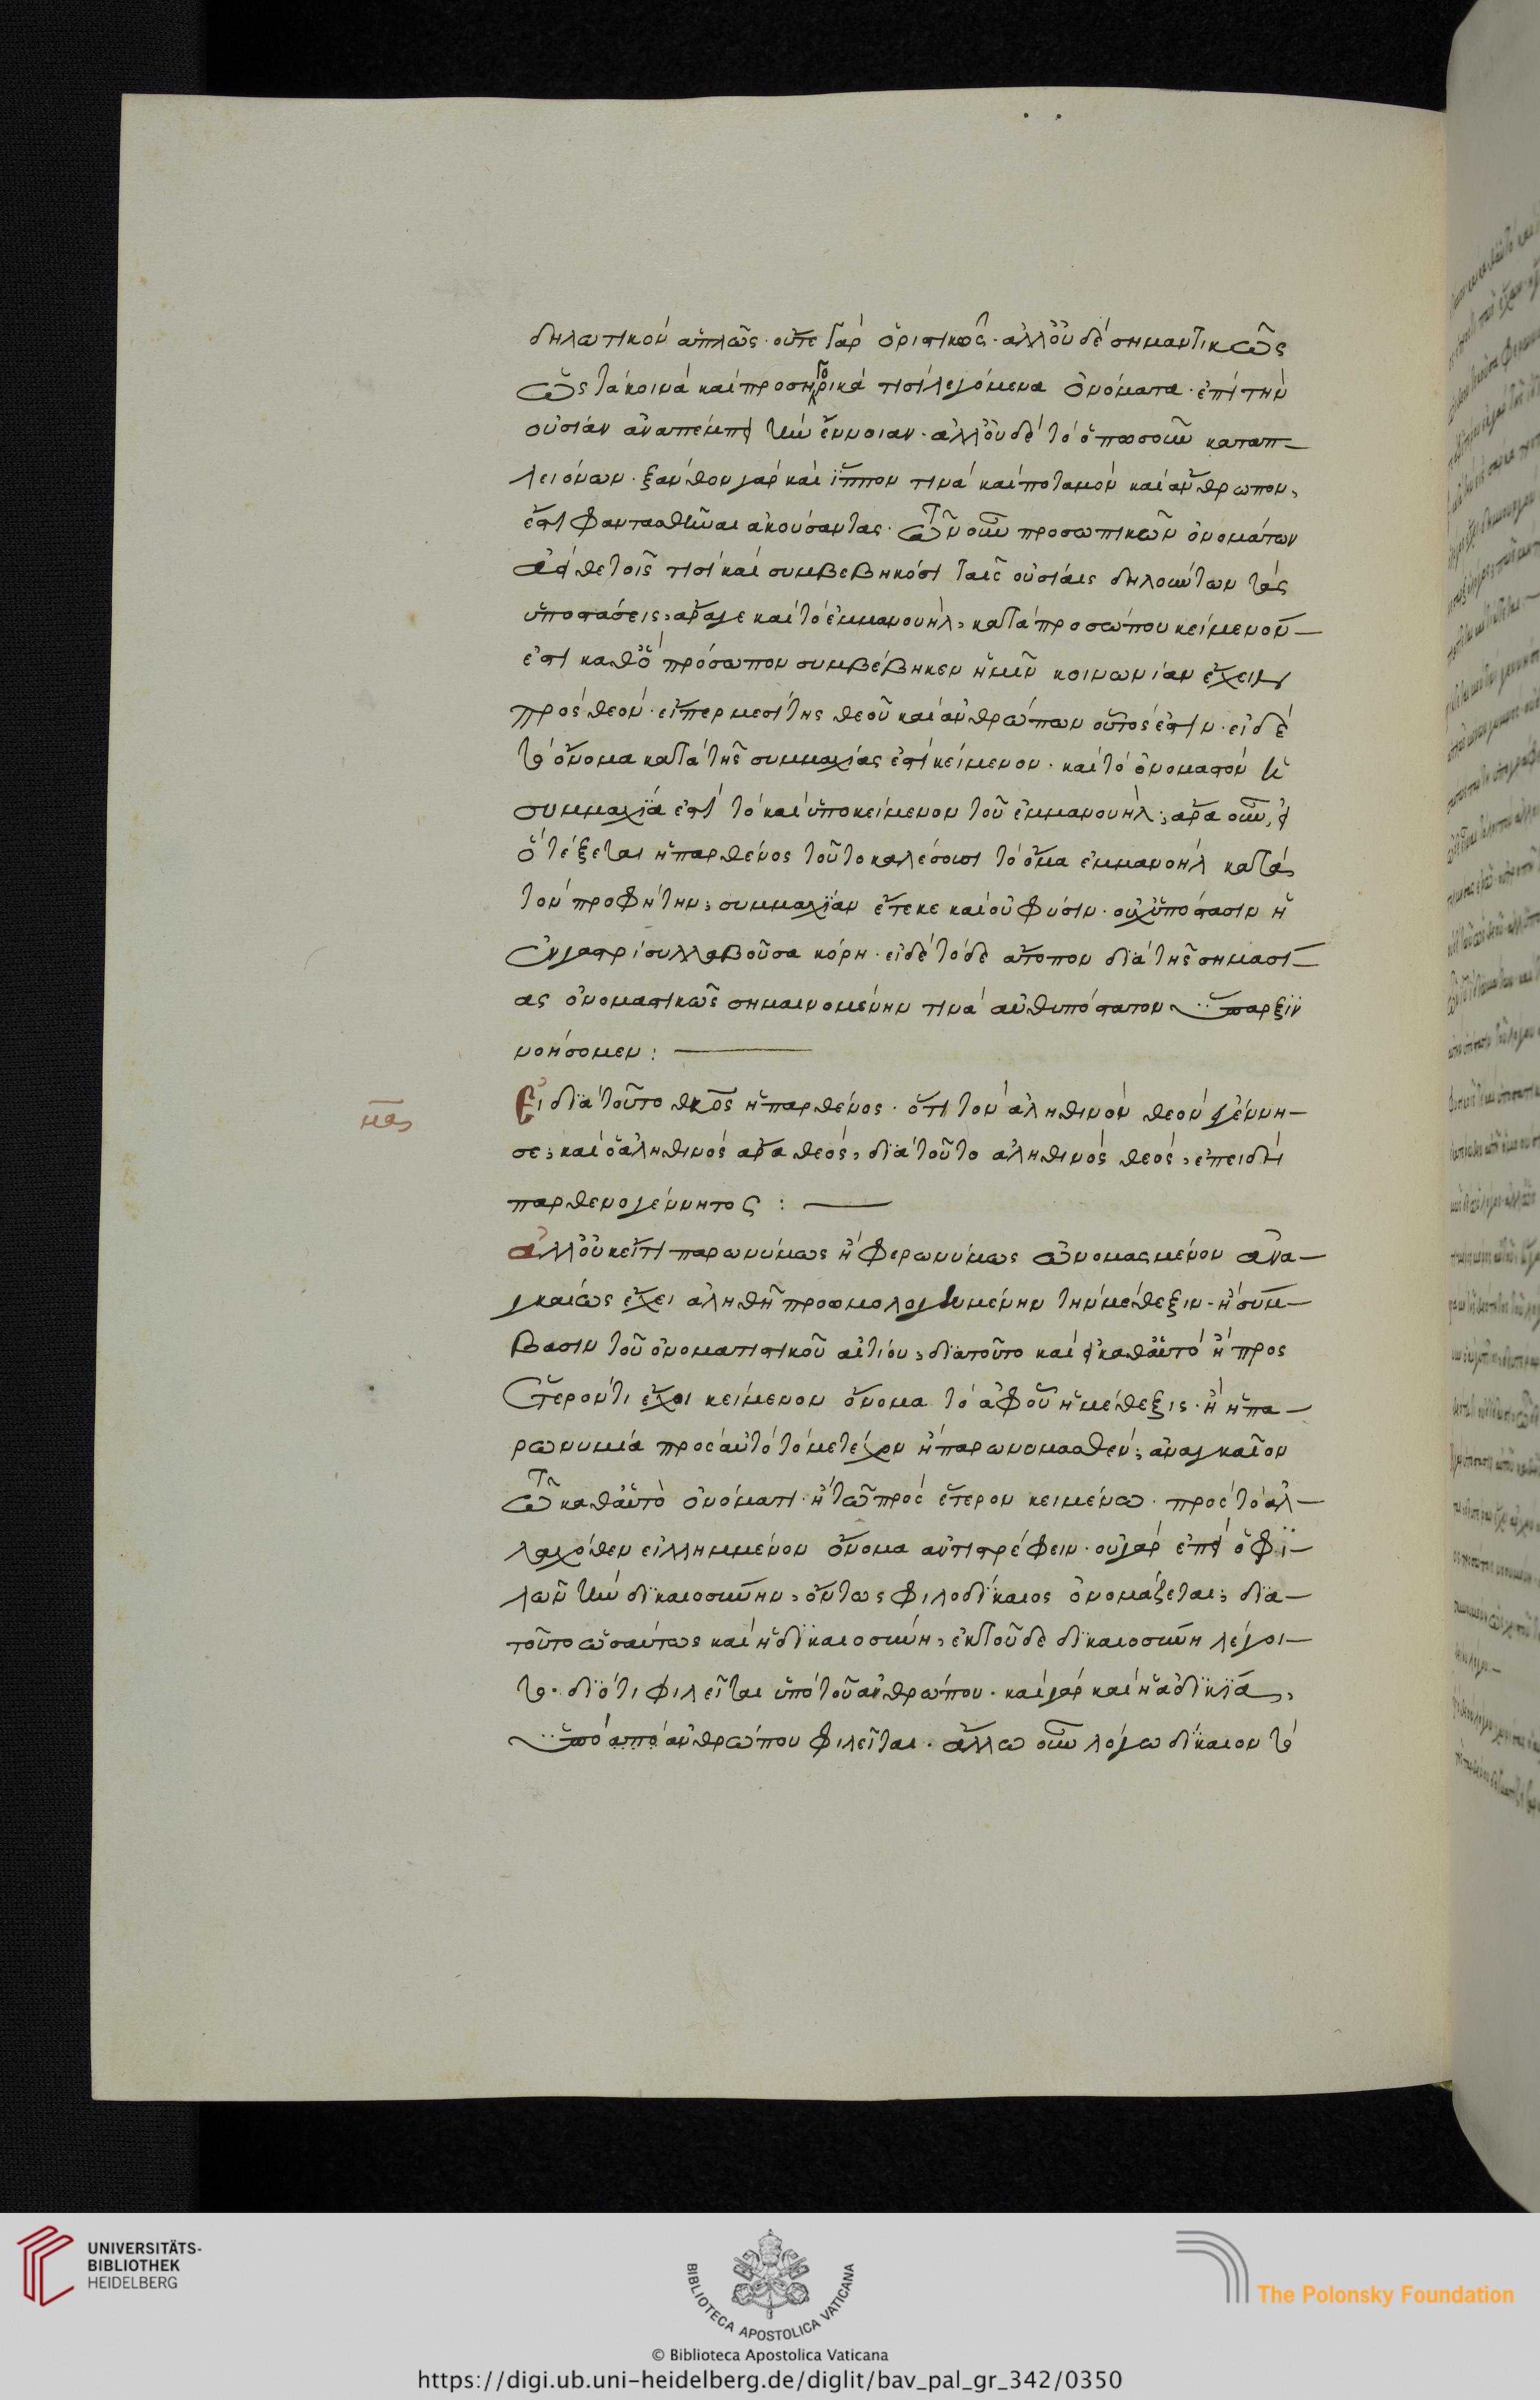 δηλωτικὸν ἁπλῶς· οὔτε γὰρ ὁριστικῶς· ἀλλ' οὐδὲ σημαντικῶς
ὡς τὰ κοινὰ καὶ προσηγορικά τισι λεγόμενα ὀνόματα· ἐπὶ τὴν
οὐσίαν ἀναπέμπει τὴν ἔννοιαν· ἀλλ' οὐδὲ τὸ ὁπωσοῦν κατὰ π-
λειόνων· ξανθὸν γὰρ καὶ ἵππον τινὰ καὶ ποταμὸν καὶ ἄνθρωπον,
ἔστι φαντασθῆναι ἀκούσαντας· τῶν οὖν προσωπικῶν ὀνομάτων
ἐπὶ θετοῖς τισὶ καὶ συμβεβηκόσι ταῖς οὐσίαις δηλούντων τὰς
ὑποστάσεις, ἆρά γε καὶ τὸ ἐμμανουὴλ, κατὰ προσώπου κείμενον
ἐστὶ καθ' ὃ πρόσωπον συμβέβηκεν ἡμῖν κοινωνίαν ἔχειν
πρὸς θεὸν· εἴπερ μεσίτης θεοῦ καὶ ἀνθρώπων οὗτος ἐστὶν· εἰ δὲ
τὸ ὄνομα κατὰ τῆς συμμαχίας ἐστὶ κείμενον· καὶ τὸ ὀνομαστὸν ἡ
συμμαχία ἐστὶ τὸ καὶ ὑποκείμενον τοῦ ἐμμανουὴλ; ἆρα οὖν, εἰ
ὃ τέξεται ἡ παρθένος τοῦτο καλέσουσι τὸ ὄνομα ἐμμανουὴλ κατὰ
τὸν προφήτην; συμμαχίαν ἔτεκε καὶ οὐ φύσιν· οὐχ ὑπόστασιν ἡ
ἐν γαστρὶ συλλαβοῦσα κόρη· εἰ δὲ τόδε ἄτοπον διὰ τῆς σημασί-
ας ὀνομαστικῶς σημαινομένην τινὰ αὐθυπόστατον ὕπαρξιν
νοήσομεν:
Εἰ διὰ τοῦτο θκος ἡ παρθένος· ὅτι τὸν ἀληθινὸν θεὸν γέννη-
σε; καὶ ὁ ἀληθινὸς ἄρα θεὸς, διὰ τοῦτο ἀληθινὸς θεὸς, ἐπειδὴ
παρθενογέννητος:
ἀλλ' οὐκ εἴ τι παρωνύμως ἢ φερωνύμως ὠνομασμένον ἀνα-
γκαίως ἔχει ἀληθῆ προομολογουμένην τὴν μέθεξιν· ἢ σύμ-
βασιν τοῦ ὀνοματιστικοῦ αἰτίου; διατοῦτο καὶ εἰ καθ' αὑτὸ ἢ πρὸς
ἕτερόν τι ἔχοι κείμενον ὄνομα τὸ ἀφ' οὗ ἡ μέθεξις· ἢ ἡ πα-
ρωνυμία πρὸς αὐτὸ τὸ μετέχον ἢ παρωνομασθὲν; ἀναγκαῖον
τῶ καθ' αὑτὸ ὀνόματι· ἢ τῶ πρὸς ἕτερον κειμένω· πρὸς τὸ ἀλ-
λαχόθεν εἰλημμένον ὄνομα ἀντιστρέφειν· οὐ γὰρ ἐπεὶ ὁ φι-
λῶν τὴν δικαιοσύνην, ὄντως φιλοδίκαιος ὀνομάζεται; δια-
τοῦτο ὡσαύτως καὶ ἡ δικαιοσύνη, ἐκ τοῦδε δικαιοσύνη λέγοι-
το· διότι φιλεῖται ὑπὸ τοῦ ἀνθρώπου· καὶ γὰρ καὶ ἡ ἀδικία,
ὑπὸ ἀπὸ ἀνθρώπου φιλεῖται· ἄλλω οὖν λόγω δίκαιον τὸ
UNIVERSITÄTS-
BIBLIOTHEK
HEIDELBERG
BIBLIOTECA APOSTOLICA VATICANA
The Polonsky Foundation
© Biblioteca Apostolica Vaticana
https://digi.ub.uni-heidelberg.de/diglit/bav_pal_gr_342/0350